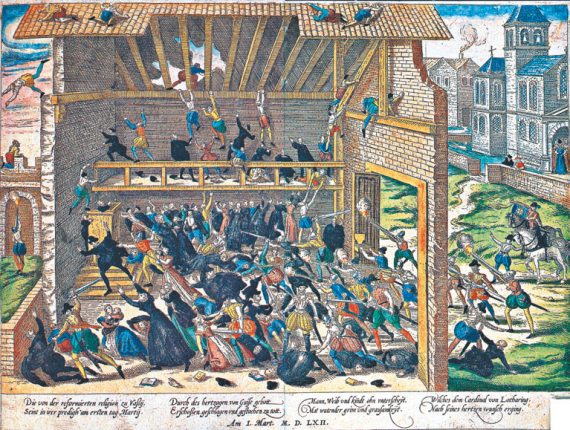 Die von der reformierten religion zu Vassy,
Seint in irer predigh am ersten tag Martij
Durch des hertzogen von Guise gebott
Erschossen, geschlagen vnd gestochen zu tott,
Mann, Weib vnd kindt ohn vnterscheyt,
Mit wutender grim vnd grausamkeyt.
Welches dem Cardinal von Lotharing,
Nach seines hertzen wunsch erging.
Am I. Mart. M. D. LXII.